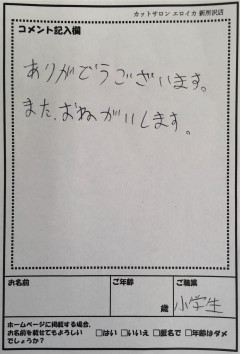 カットサロン エロイカ 新所沢店
コメント記入欄
ありがどうございます。
また、おねがいします。
お名前
ご年齢
歳
ご職業
小学生
ホームページに掲載する場合、
お名前を載せてもよろしい
でしょうか?
□はい □いいえ □匿名で □年齢はダメ